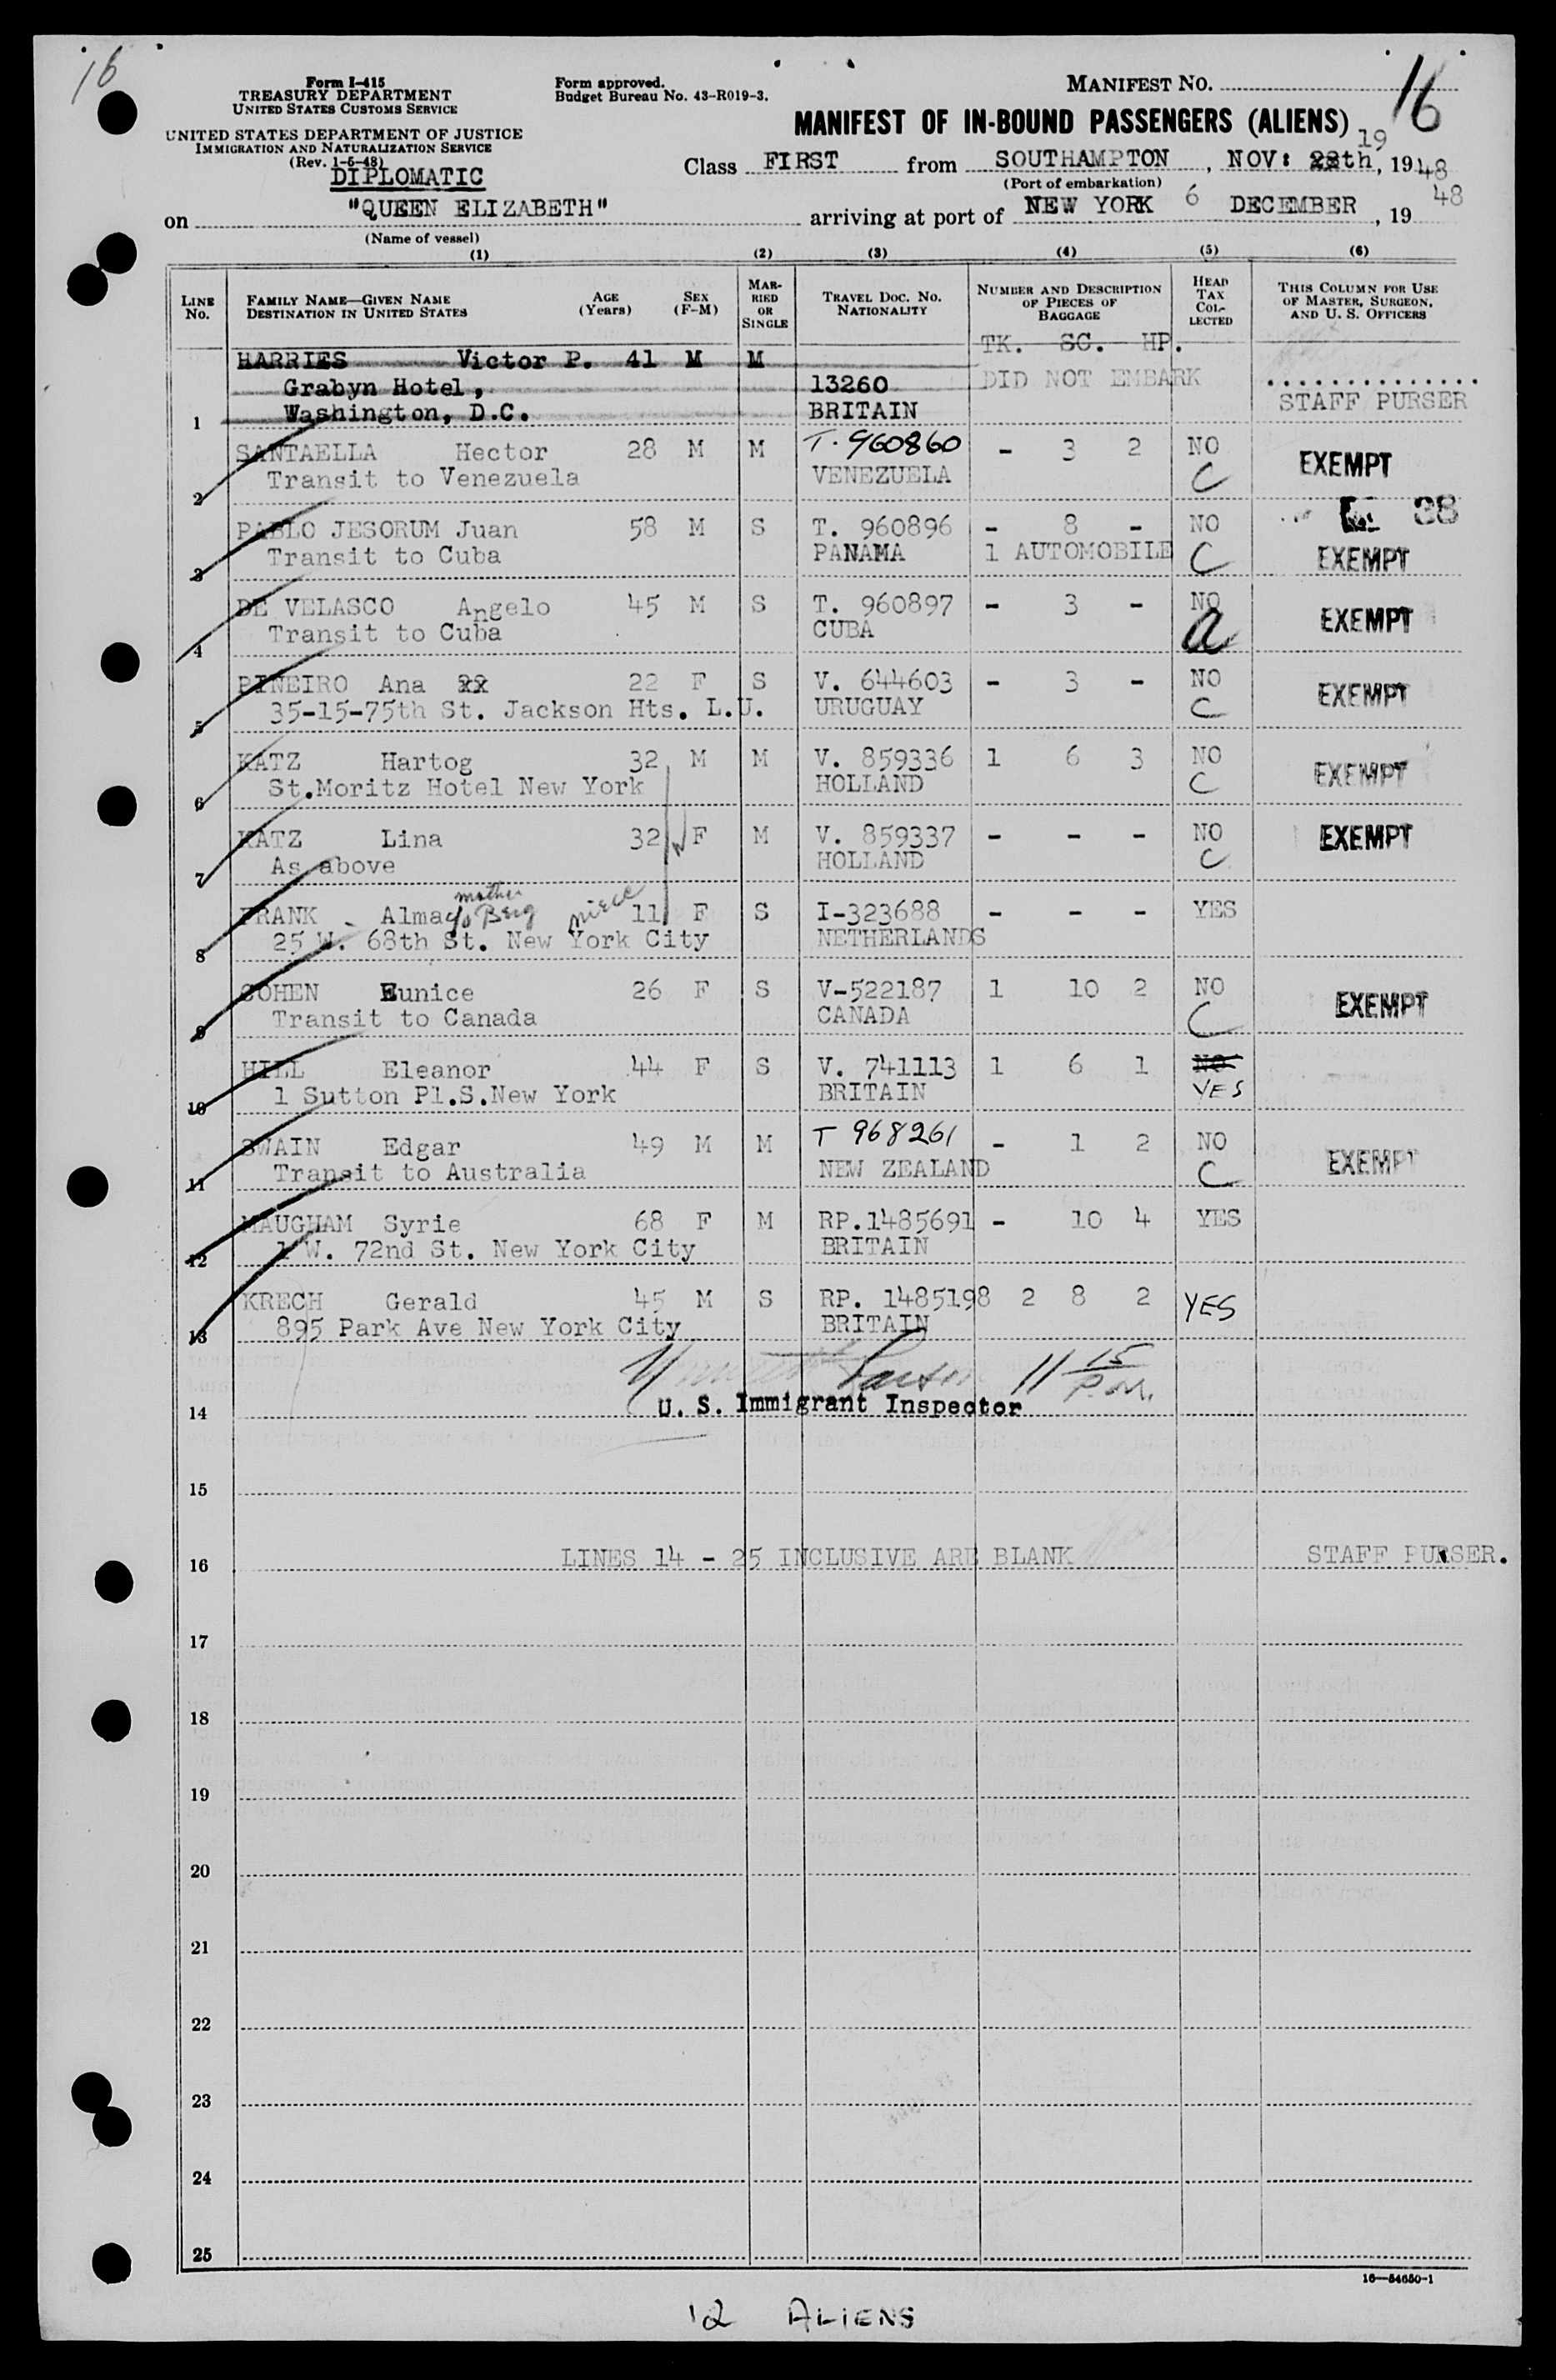 16
Form I-415
TREASURY DEPARTMENT
UNITED STATES CUSTOMS SERVICE
UNITED STATES DEPARTMENT OF JUSTICE
IMMIGRATION AND NATURALIZATION SERVICE
(Rev. 1-6-48)
DIPLOMATIC
Form approved.
Budget Bureau No. 43-R019-3.
MANIFEST NO. 16
MANIFEST OF IN-BOUND PASSENGERS (ALIENS)
19
Class FIRST from SOUTHAMPTON, NOV: 28th, 1948
(Port of embarkation)
on "QUEEN ELIZABETH" arriving at port of NEW YORK 6 DECEMBER, 19 48
(Name of vessel)
(1) (2) (3) (4) (5) (6)
LINE No. FAMILY NAME—GIVEN NAME DESTINATION IN UNITED STATES AGE (Years) SEX (F-M) MARRIED OR SINGLE TRAVEL DOC. NO. NATIONALITY NUMBER AND DESCRIPTION OF PIECES OF BAGGAGE HEAD TAX COLLECTED THIS COLUMN FOR USE OF MASTER, SURGEON, AND U. S. OFFICERS
TK. SC. HP.
HARRIES Victor P. 41 M M
Grabyn Hotel, 13260 DID NOT EMBARK
1 Washington, D.C. BRITAIN STAFF PURSER
SANTAELLA Hector 28 M M T. 960860 - 3 2 NO EXEMPT
2 Transit to Venezuela VENEZUELA C
38
PABLO JESORUM Juan 58 M S T. 960896 - 8 - NO
3 Transit to Cuba PANAMA 1 AUTOMOBILE C EXEMPT
DE VELASCO Angelo 45 M S T. 960897 - 3 - NO EXEMPT
4 Transit to Cuba CUBA a
PINEIRO Ana 22 22 F S V. 644603 - 3 - NO EXEMPT
5 35-15-75th St. Jackson Hts. L.U. URUGUAY C
KATZ Hartog 32 M M V. 859336 1 6 3 NO EXEMPT
6 St.Moritz Hotel New York HOLLAND C
KATZ Lina 32 F M V. 859337 - - - NO EXEMPT
7 As above HOLLAND C
mother
FRANK - Alma c/o Berg niece 11 F S I-323688 - - - YES
8 25 W. 68th St. New York City NETHERLANDS
COHEN Eunice 26 F S V-522187 1 10 2 NO EXEMPT
9 Transit to Canada CANADA C
HILL Eleanor 44 F S V. 741113 1 6 1 NO
10 1 Sutton Pl.S.New York BRITAIN YES
SWAIN Edgar 49 M M T 968261 - 1 2 NO EXEMPT
11 Transit to Australia NEW ZEALAND C
MAUGHAM Syrie 68 F M RP.1485691 - 10 4 YES
12 1 W. 72nd St. New York City BRITAIN
KRECH Gerald 45 M S RP. 1485198 2 8 2 YES
13 895 Park Ave New York City BRITAIN
11 15 P.M.
14 U. S. Immigrant Inspector
15
16 LINES 14 - 25 INCLUSIVE ARE BLANK STAFF PURSER.
17
18
19
20
21
22
23
24
25
16—54650-1
12 ALIENS